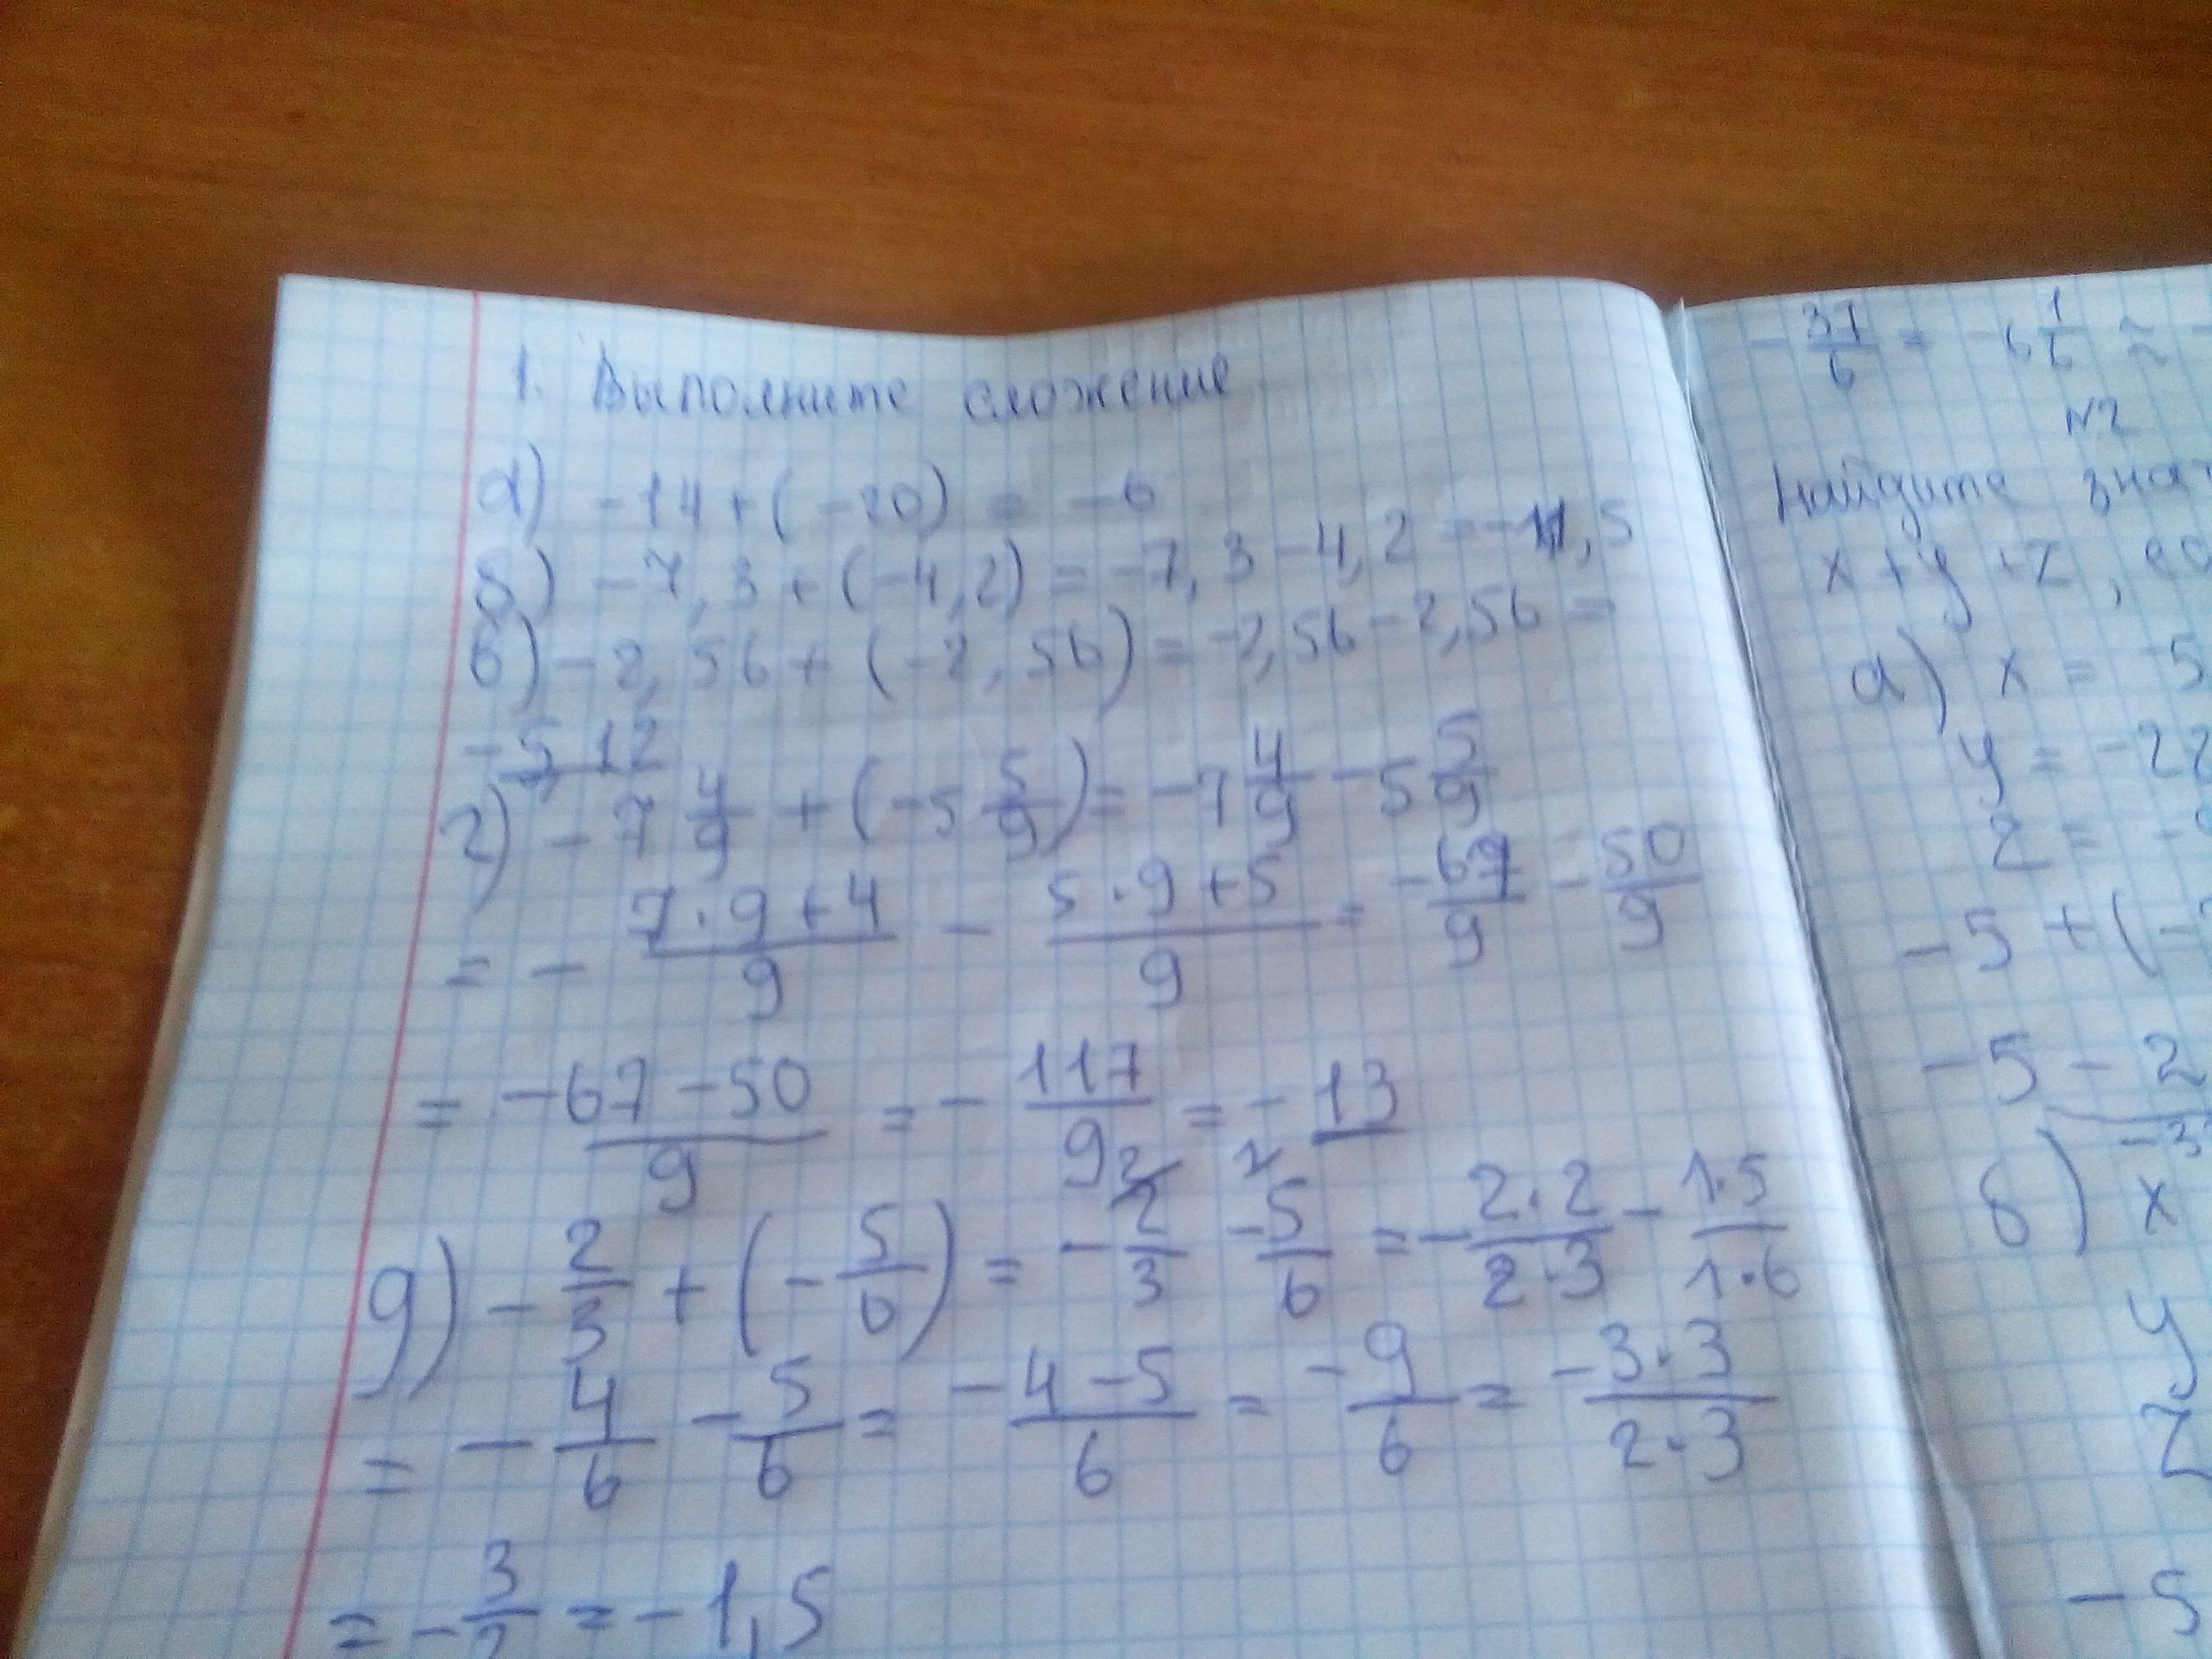 1. Выполните сложение
а) -14+(-20) = -6
б) -7,3+(-4,2) = -7,3-4,2 = -11,5
в) -2,56+(-2,56) = -2,56-2,56 =
-5,12
г) -7 4/9 + (-5 5/9) = -7 4/9 - 5 5/9
= - (7·9+4)/9 - (5·9+5)/9 = -67/9 - 50/9
= (-67-50)/9 = - 117/9 = -13
д) - 2/3 + (- 5/6) = - 2/3 - 5/6 = - (2·2)/(2·3) - (1·5)/(1·6)
= - 4/6 - 5/6 = (-4-5)/6 = -9/6 = (-3·3)/(2·3)
= - 3/2 = -1,5
- 37/6 = -6 1/6 ≈
N2
Найдите
x+y+z,
а) x = -5
y = -22
z = -
-5+(-
-5-2
-3
б) x
y
z
-5